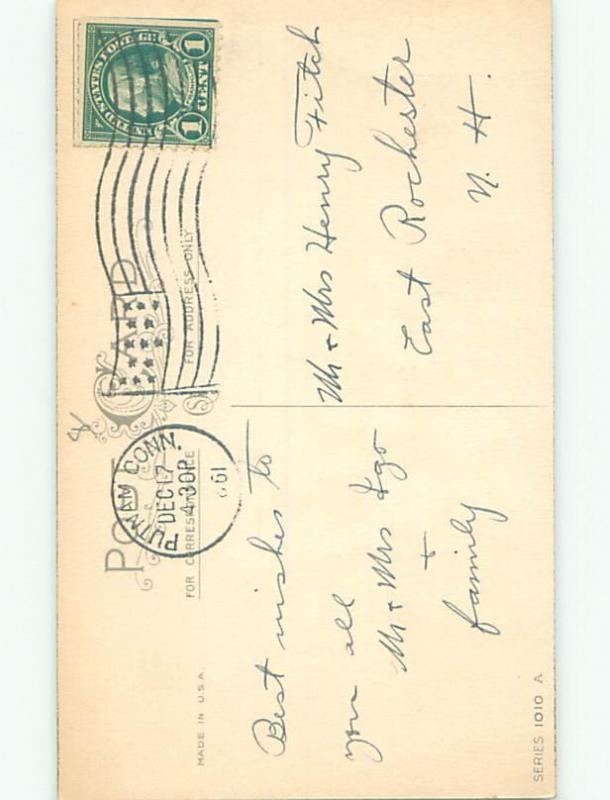 POST CARD
FOR CORRESPONDENCE
FOR ADDRESS ONLY
MADE IN U.S.A.
PUTNAM CONN.
DEC 17
4-30P
UNITED STATES POSTAGE
1 CENT 1
Best wishes to
you all
Mr & Mrs Igo
+
family
Mr & Mrs Henry Fitch
East Rochester
N. H.
SERIES 1010 A